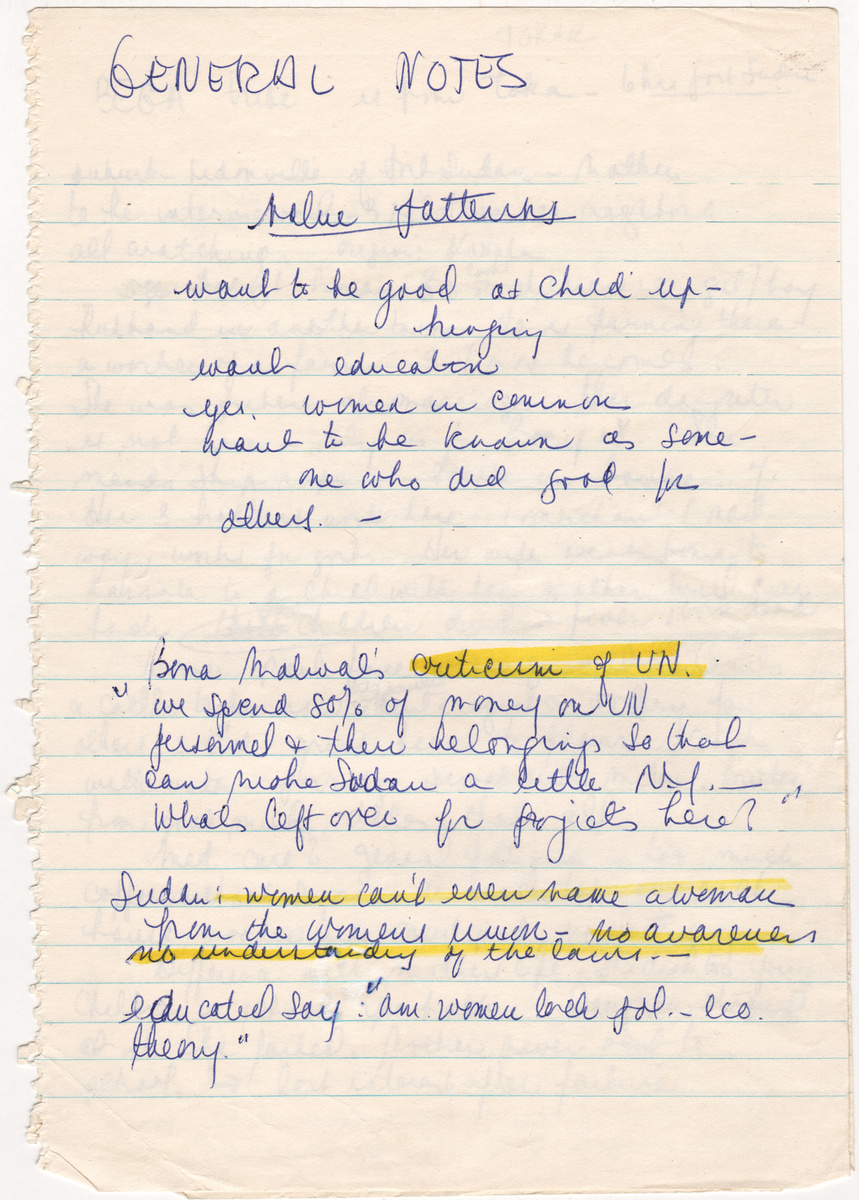 GENERAL NOTES
Value Patterns
want to be good as child up-
hungry
want education
yes. women in common
want to be known as some-
one who did good for
others. —
Bona Malwal's criticism of UN.
"we spend 80% of money on UN
personnel & their belongings so that
can make Sudan a little N.Y. —
Whats left over for projects here?"
Sudan: women can't even name a woman
from the women's union - no awareness
no understanding of the laws. —
educated say: "am. women lack pol. - eco.
theory."